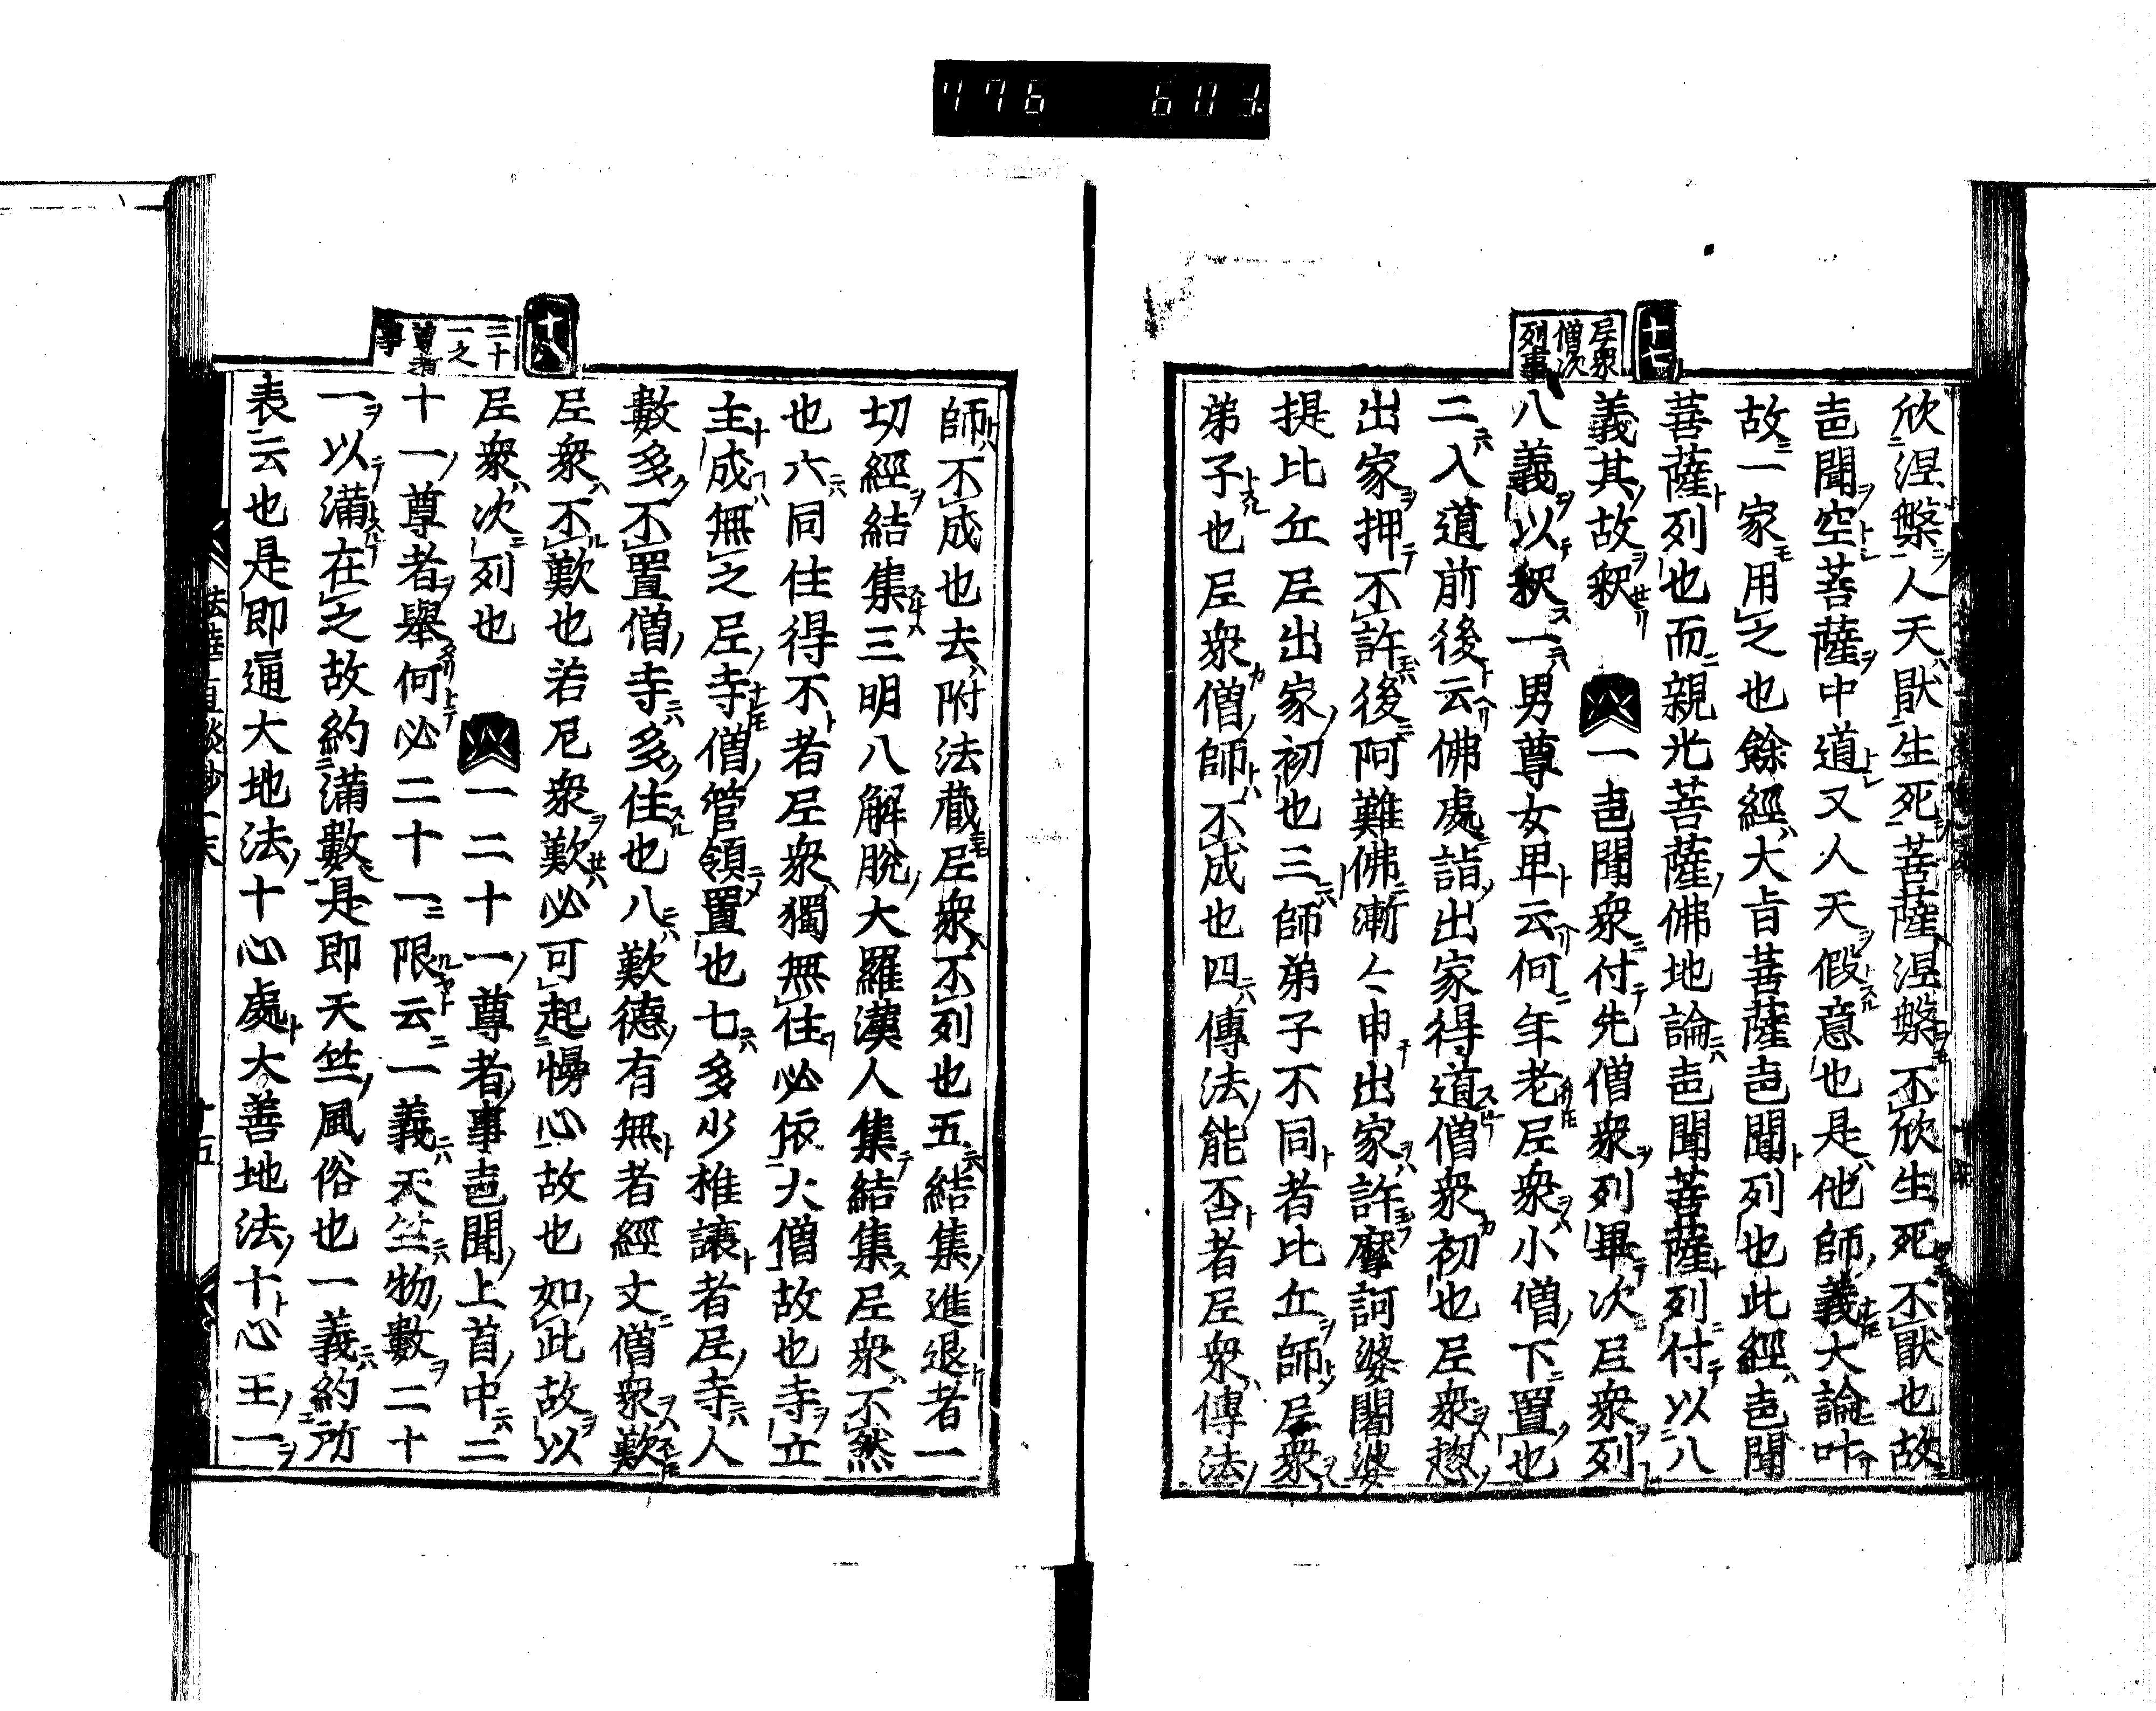 776 601
十七
尼衆
僧次
列事
欣涅槃人天猒生死菩薩涅槃不欣生死不猒也故
声聞空菩薩中道又人天假意也是他師義大論叶
故一家用之也餘經大旨菩薩声聞列也此經声聞
菩薩列也而親光菩薩佛地論声聞菩薩列付以八
義其故釈 一声聞衆付先僧衆列畢次尼衆列
八義以釈一男尊女卑云何年老尼衆小僧下置也
二入道前後云佛處詣出家得道僧衆初也尼衆
出家押不許後阿難佛漸〻申出家許摩訶婆闍婆
提比丘尼出家初也三師弟子不同者比丘師尼衆
弟子也尼衆僧師不成也四傳法能否者尼衆傳法
十八
二十
一之
尊者
事
師不成也去附法蔵尼衆不列也五結集進退者一
切經結集三明八解脱大羅漢人集結集尼衆不然
也六同住得不者尼衆獨無住必依大僧故也寺立
主成無之尼寺僧管領置也七多少推讓者尼寺人
數多不置僧寺多住也八歎德有無者經文僧衆歎
尼衆不歎也若尼衆歎必可起慢心故也如此故以
尼衆次列也 一二十一尊者事声聞上首中二
十一尊者舉何必二十一限云一義天竺物數二十
一以滿在之故約滿數是即天竺風俗也一義約所
表云也是即通大地法十心處大善地法十心王一
法華直談鈔一末
十五